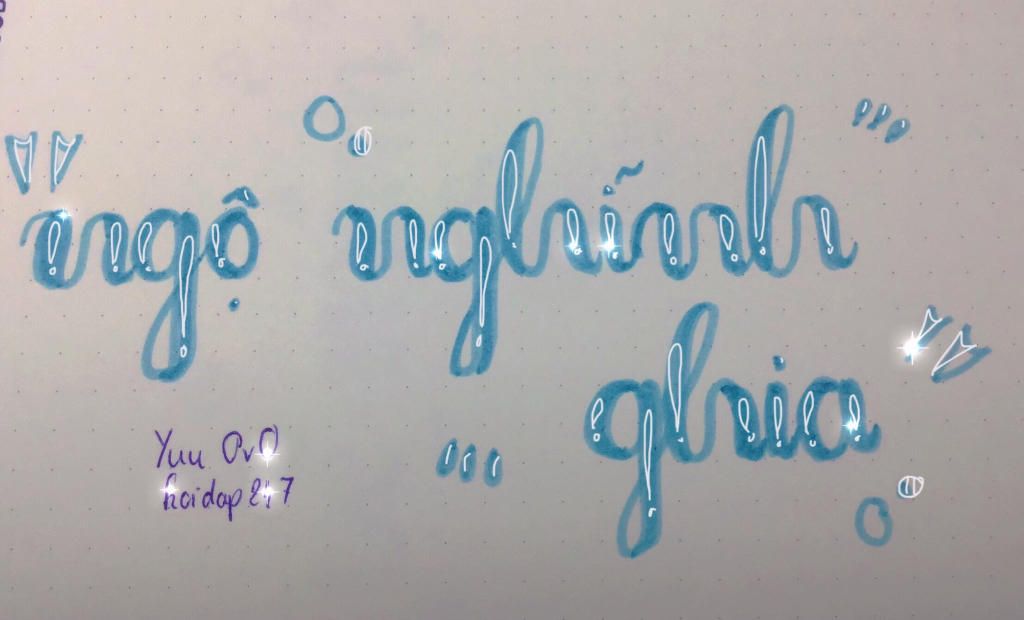 "ngộ nghĩnh
ghia"
Yuu OvO
hoidap247